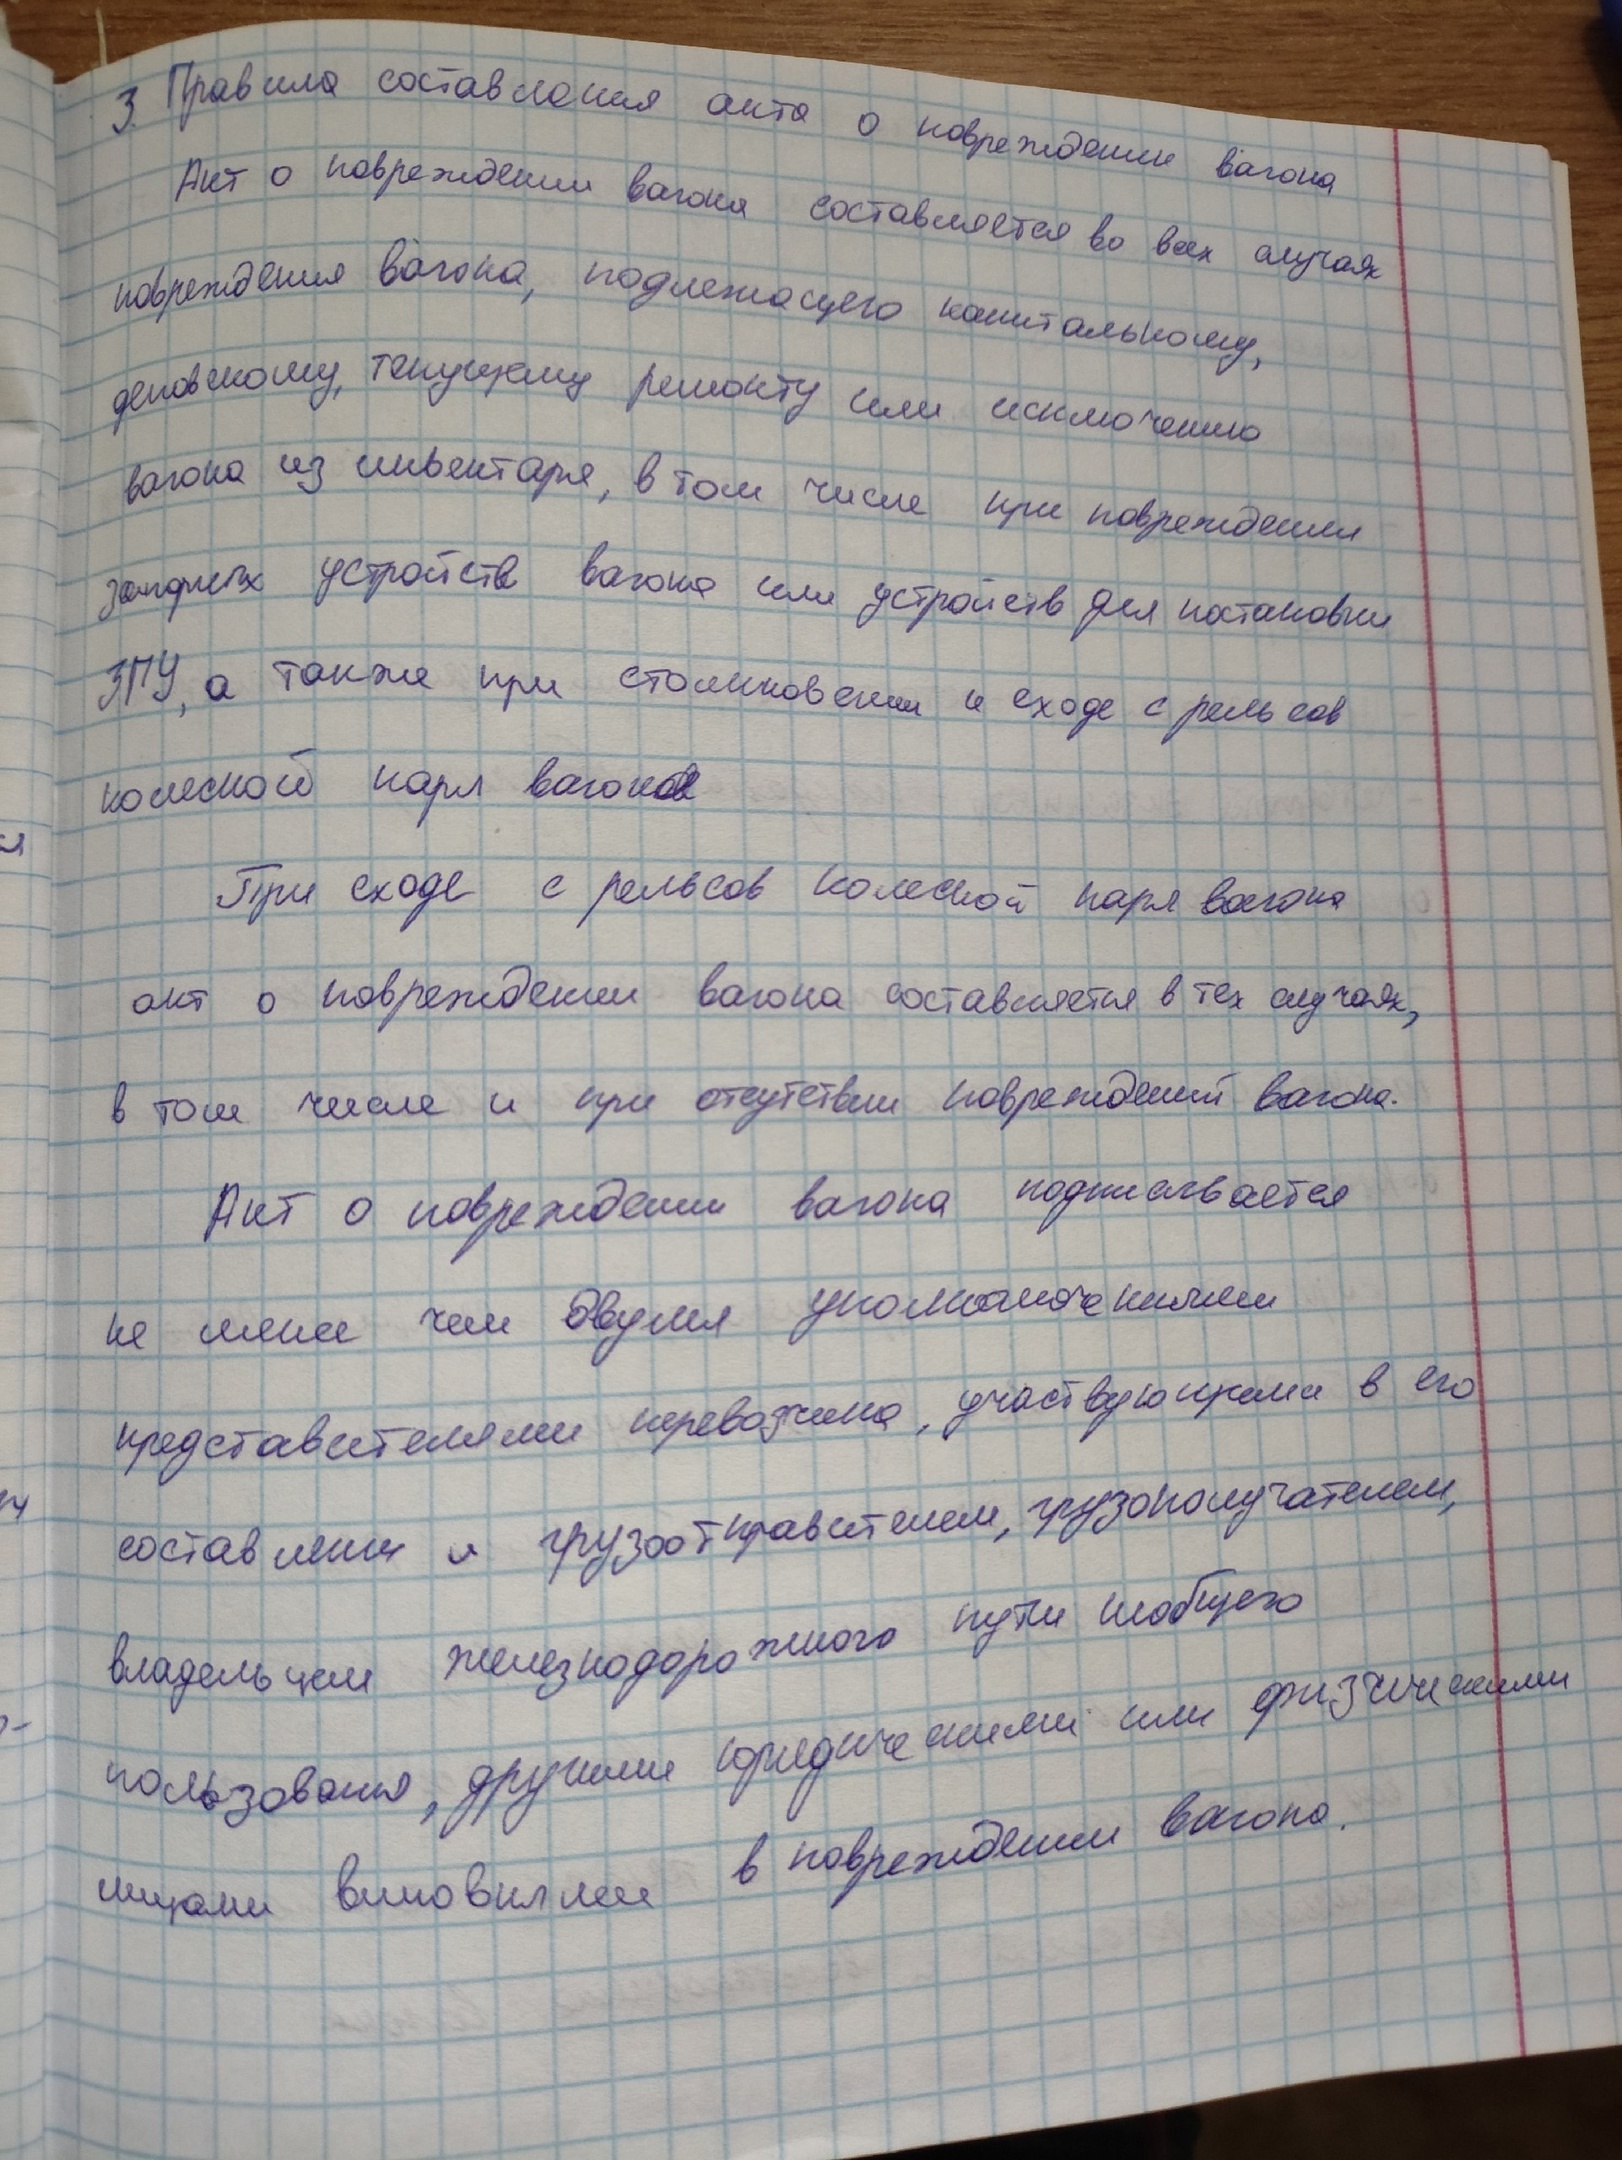 3. Правила составления акта о повреждении вагона
Акт о повреждении вагона составляется во всех случаях
повреждения вагона, подлежащего капитальному,
деповскому, текущему ремонту или исключению
вагона из инвентаря, в том числе при повреждении
запорных устройств вагона или устройств для постановки
ЗПУ, а также при столкновении и сходе с рельсов
колесной пары вагона
При сходе с рельсов колесной пары вагона
акт о повреждении вагона составляется в тех случаях,
в том числе и при отсутствии повреждений вагона.
Акт о повреждении вагона подписывается
не менее чем двумя уполномоченными
представителями перевозчика, участвующими в его
составлении и грузоотправителем, грузополучателем,
владельцем железнодорожного пути необщего
пользования, другими юридическими или физическими
лицами виновными в повреждении вагона.